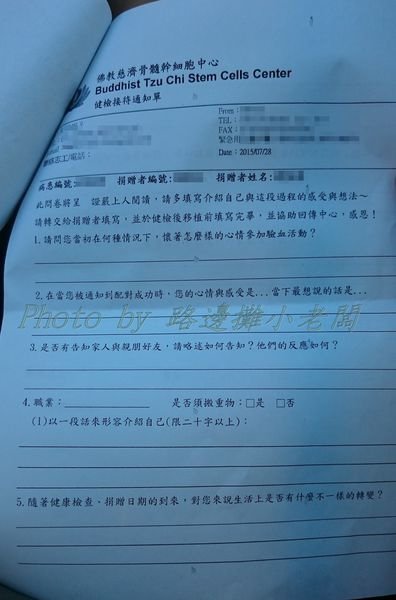 佛教慈濟骨髓幹細胞中心
Buddhist Tzu Chi Stem Cells Center
健檢接待通知單
From:
TEL:
FAX:
緊急用
聯絡志工/電話:
Date:2015/07/28
病患編號: 捐贈者編號: 捐贈者姓名:
此問卷將呈 證嚴上人閱讀,請多填寫介紹自己與這段過程的感受與想法~
請轉交給捐贈者填寫,並於健檢後移植前填寫完畢,並協助回傳中心,感恩!
1.請問您當初在何種情況下,懷著怎麼樣的心情參加驗血活動?
2.在當您被通知到配對成功時,您的心情與感受是...當下最想說的話是...
Photo by 路邊攤小老闆
3.是否有告知家人與親朋好友,請略述如何告知?他們的反應如何?
4.職業: 是否須搬重物:□是 □否
(1)以一段話來形容介紹自己(限二十字以上):
5.隨著健康檢查、捐贈日期的到來,對您來說生活上是否有什麼不一樣的轉變?